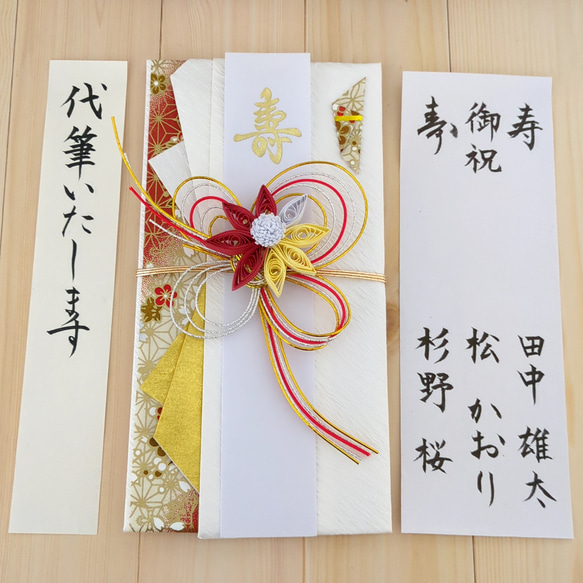 代筆いたします
寿
寿
御祝
寿
田中 雄太
松 かおり
杉野 桜